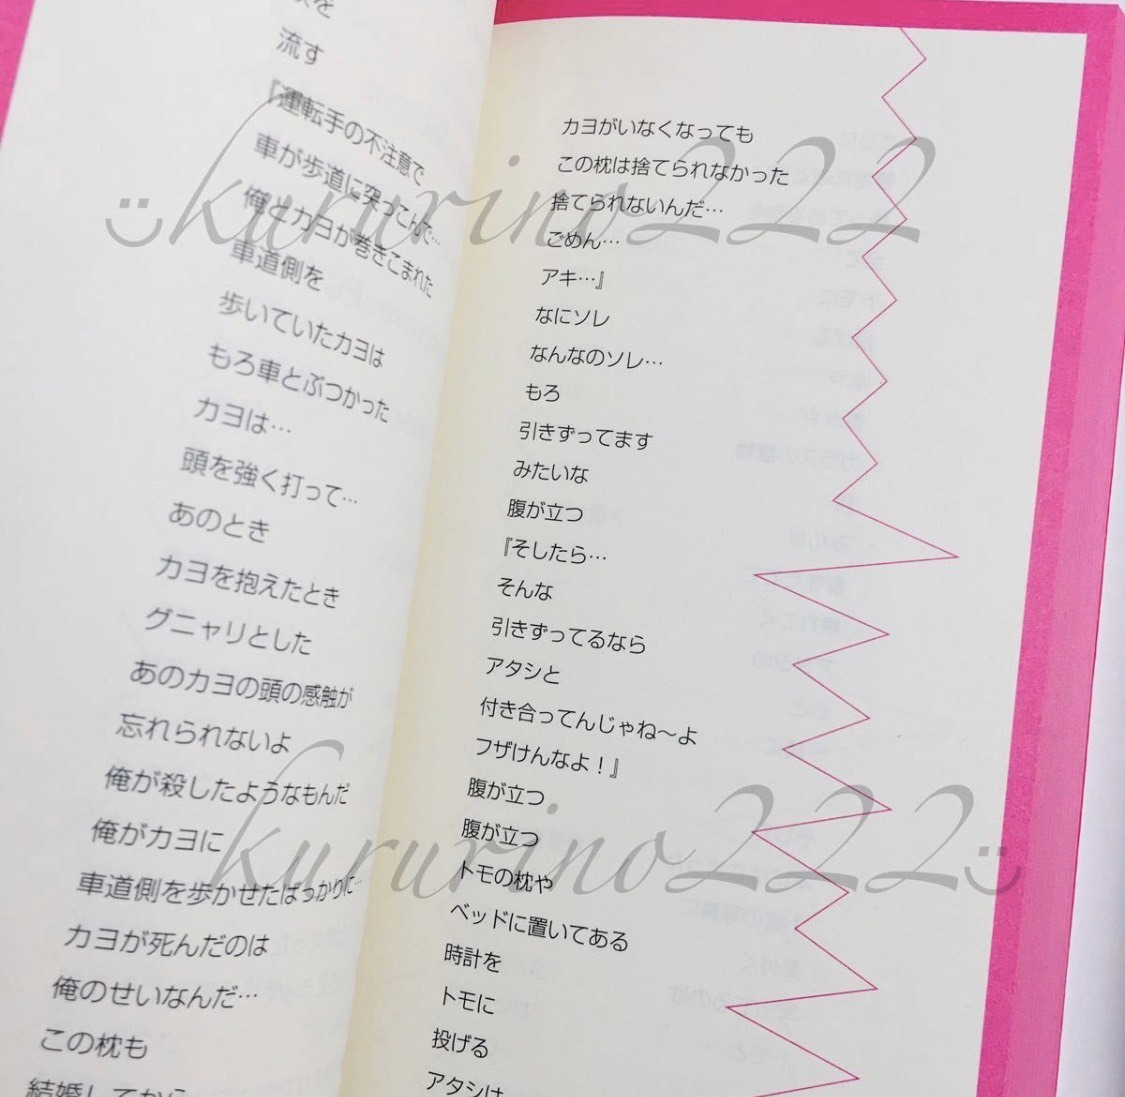 流す
『運転手の不注意で
車が歩道に突っこんで…
俺とカヨが巻きこまれた
車道側を
歩いていたカヨは
もろ車とぶつかった
カヨは…
頭を強く打って…
あのとき
カヨを抱えたとき
グニャリとした
あのカヨの頭の感触が
忘れられないよ
俺が殺したようなもんだ
俺がカヨに
車道側を歩かせたばっかりに…
カヨが死んだのは
俺のせいなんだ…
この枕も
結婚してから
カヨがいなくなっても
この枕は捨てられなかった
捨てられないんだ…
ごめん…
アキ…』
なにソレ
なんなのソレ…
もろ
引きずってます
みたいな
腹が立つ
『そしたら…
そんな
引きずってるなら
アタシと
付き合ってんじゃね〜よ
フザけんなよ！』
腹が立つ
腹が立つ
トモの枕や
ベッドに置いてある
時計を
トモに
投げる
アタシは
kururino222
kururino222